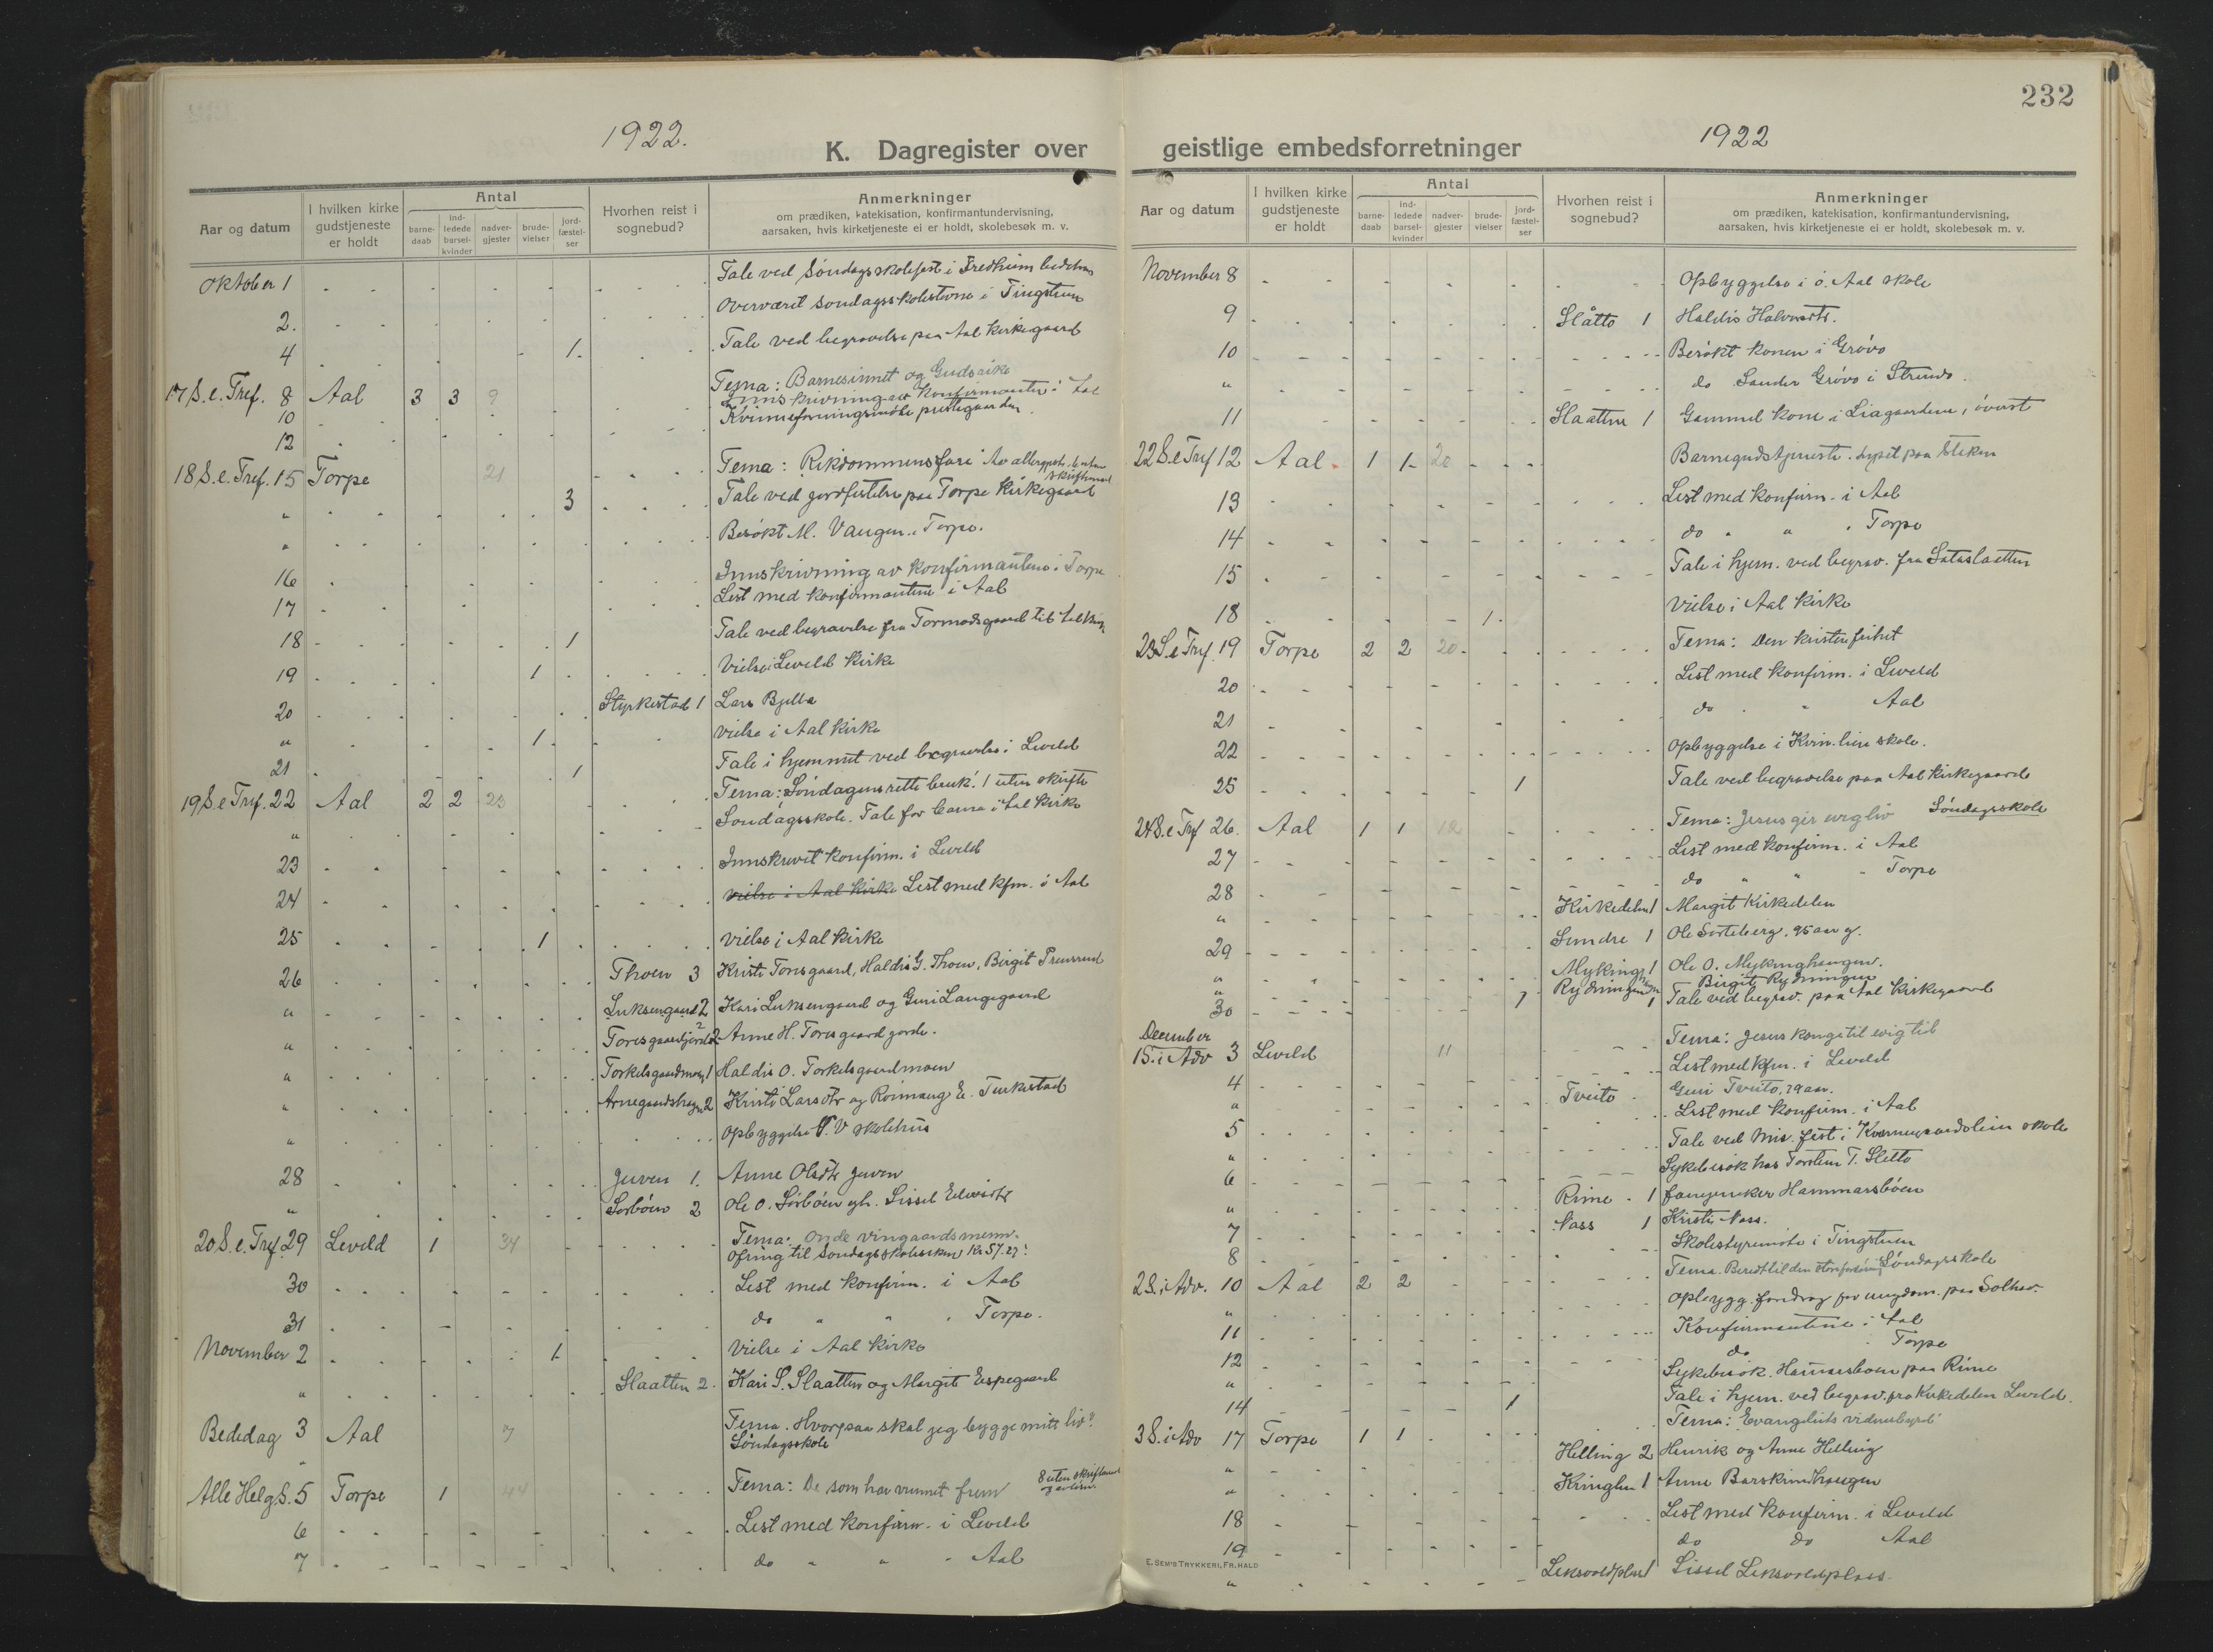 1922.
K. Dagregister over
Aar og datum | I hvilken kirke gudstjeneste er holdt | Antal | barne-daab | ind-ledede barsel-kvinder | nadver-gjester | brude-vielser | jord-fæstel-ser | Hvorhen reist i sognebud? | Anmerkninger om prædiken, katekisation, konfirmantundervisning, aarsaken, hvis kirketjeneste ei er holdt, skolebesøk m. v.
Oktober 1 Tale ved Söndagsskolefest i Fredheim
2. Overværet Sondagsskolestevne i Tingstuen
4 1. Tale ved begravelse paa Aal Kirkegaard
17 S. e. Tref. 8 Aal 3 3 9 Tema: Barnesinnet og Gudsrike
10 Innskrivning av Konfirmanter i Aal
12 Kvinneforeningsmøte prestegaarden
18 S. e. Tref. 15 Torpe 21 Tema: Rikdommens fare
" 3 Tale ved jordfestelse paa Torpe Kirkegaard
" Besökt M. Vangen. Torpe.
16 Innskrivning av konfirmantene i Torpe
17 Lest med konfirmantene i Aal
18 1 Tale ved begravelse fra Tormodsgaard til Aal
19 1 Vielse i Leveld Kirke
20 Styrkestad 1 Lars Bjella
" 1 vielse i Aal Kirke
21 1 Tale i hjemmet ved begravelse i Leveld
19 S. e Tref. 22 Aal 2 2 23 Tema: Söndagens rette bruk. 1 uten skrifte
" Söndagsskole. Tale for barna i Aal Kirke
23 Innskrevet konfirm. i Leveld
24 vielse i Aal Kirke Lest med kfm. i Aal
25 1 vielse i Aal Kirke
26 Thoen 3 Kristi Toresgaard, Haldis G. Thoen, Birgit
" Luksengaard 2 Kari Luksengaard og Guri Langegaard
" Toresgaardjorde 2 Anne H. Toresgaardjorde.
" Torkelsgaardmoen 1 Haldis O. Torkelsgaardmoen
" Arnegaardshagen 2 Kristi Larsdtr og
" Opbyggelse V skolehus
28 Juven 1. Anne Olsdtr Juven
" Sorböen 2 Ole O. Sörböen gh. Sissel
20 S. e. Tref. 29 Leveld 1 34 Tema: onde vingaardsmenn.
Ofring til Sondagsskolesaken Kr 57.27
30 Lest med konfirm. i Aal
31 do " " " Torpe.
November 2 1 Vielse i Aal Kirke
" Slaatten 2. Kari S. Slaatten og Margit Espegaard
Bededag 3 Aal 7 Tema. Hvorpaa skal jeg bygge mitt liv?
" Söndagsskole
Alle Helg S. 5 Torpe 1 44 Tema: De som har vunnet frem 8 uten skriftemaal
6 Lest med konfirm. i Leveld
7 do " " " Aal
232
1922
geistlige embedsforretninger
Aar og datum | I hvilken kirke gudstjeneste er holdt | Antal | barne-daab | ind-ledede barsel-kvinder | nadver-gjester | brude-vielser | jord-fæstel-ser | Hvorhen reist i sognebud? | Anmerkninger om prædiken, katekisation, konfirmantundervisning, aarsaken, hvis kirketjeneste ei er holdt, skolebesøk m. v.
November 8 Opbyggelse i ö. Aal skole
9 Slåtto 1 Haldis Halvorsdtr.
10 Besökt konen i Grövo
" do Sander Grövo i Strendo.
11 Slaatten 1 Gammel kone i Liagardene, överst
22 S. e Tref 12 Aal 1 1 20 Barnegudstjeneste.
13 Lest med konfirm. i Aal
14 do " " " Torpe
15 Tale i hjem. ved begrav. fra Sataslaatten
18 1. Vielse i Aal Kirke
23 S. e Tref. 19 Torpe 2 2 20 Tema: Den kristne frihet
20 Lest med konfirm. i Leveld
21 do " Aal
22 Opbyggelse i Kvin.lien skole.
25 1 Tale ved begravelse paa Aal Kirkegaard
24 S. e Tref 26. Aal 1 1 12 Tema: Jesus gir evig liv Söndagsskole
27 Lest med konfirm. i Aal
28 do " " " Torpe
" Kirkedelen 1 Margit Kirkedelen
29 Sundre 1 Ole Sorteberg, 95 aar g.
" Myking 1 Ole O. Mykinghaugen.
" Rydningen Birgit Rydningen
30 1 Tale ved begrav. paa Aal Kirkegaard
December
1 S. i Adv 3 Leveld 11 Tema: Jesus konge til evig tid
4 Lest med kfm. i Leveld
" Tveito Guri Tveito, 79 aar.
5 Lest med konfirm. i Aal
" Tale ved Mis. fest i skole
6 Sykebesök hos Torsten T. Sletto
" Rime 1 Hammarsböen
7 Nass 1 Kristi Nass.
8 Skolestyremöte i Tingstuen
2 S. i Adv. 10 Aal 2 2 Tema. Söndagsskole
" opbygg. foredrag for ungdom. paa Solhov.
11 Konfirmantene i Aal
12 do Torpe
" Sykebesök. Hammersboen paa Rime
14 1 Tale i hjem. ved begrav. fra Kirkedelen Leveld.
3 S. i Adv 17 Torpe 1 1 Tema: Evangeliets vidnesbyrd
" Helling 2 Henrik og Anne Helling
" Kringlen 1 Anne Barskrindhaugen
18 Lest med konfirm. i Leveld
19 do do Aal
" Leksvoldplass 1 Sissel Leksvoldsplass.
E. SEM'S TRYKKERI, FR. HALD